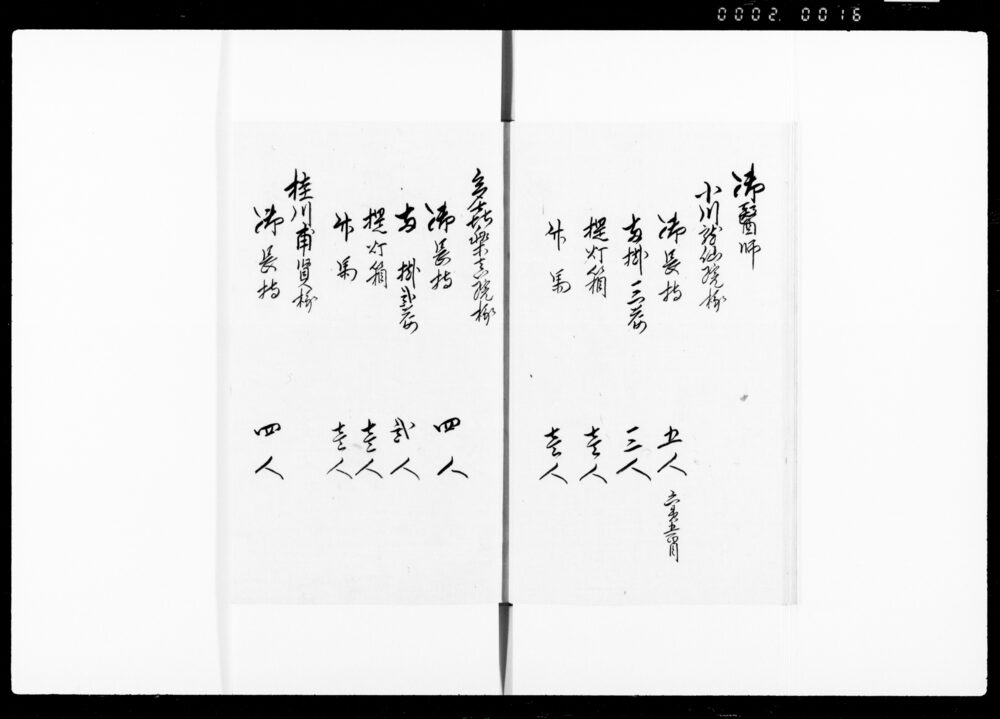 0002 0016
御醫師
小川龍仙院様
御長持 五人
両掛 三荷 三人
提灯箱 壱人
竹馬 壱人
多喜楽真院様
御長持 四人
両掛 弐荷 弐人
提灯箱 壱人
竹馬 壱人
桂川甫賢様
御長持 四人